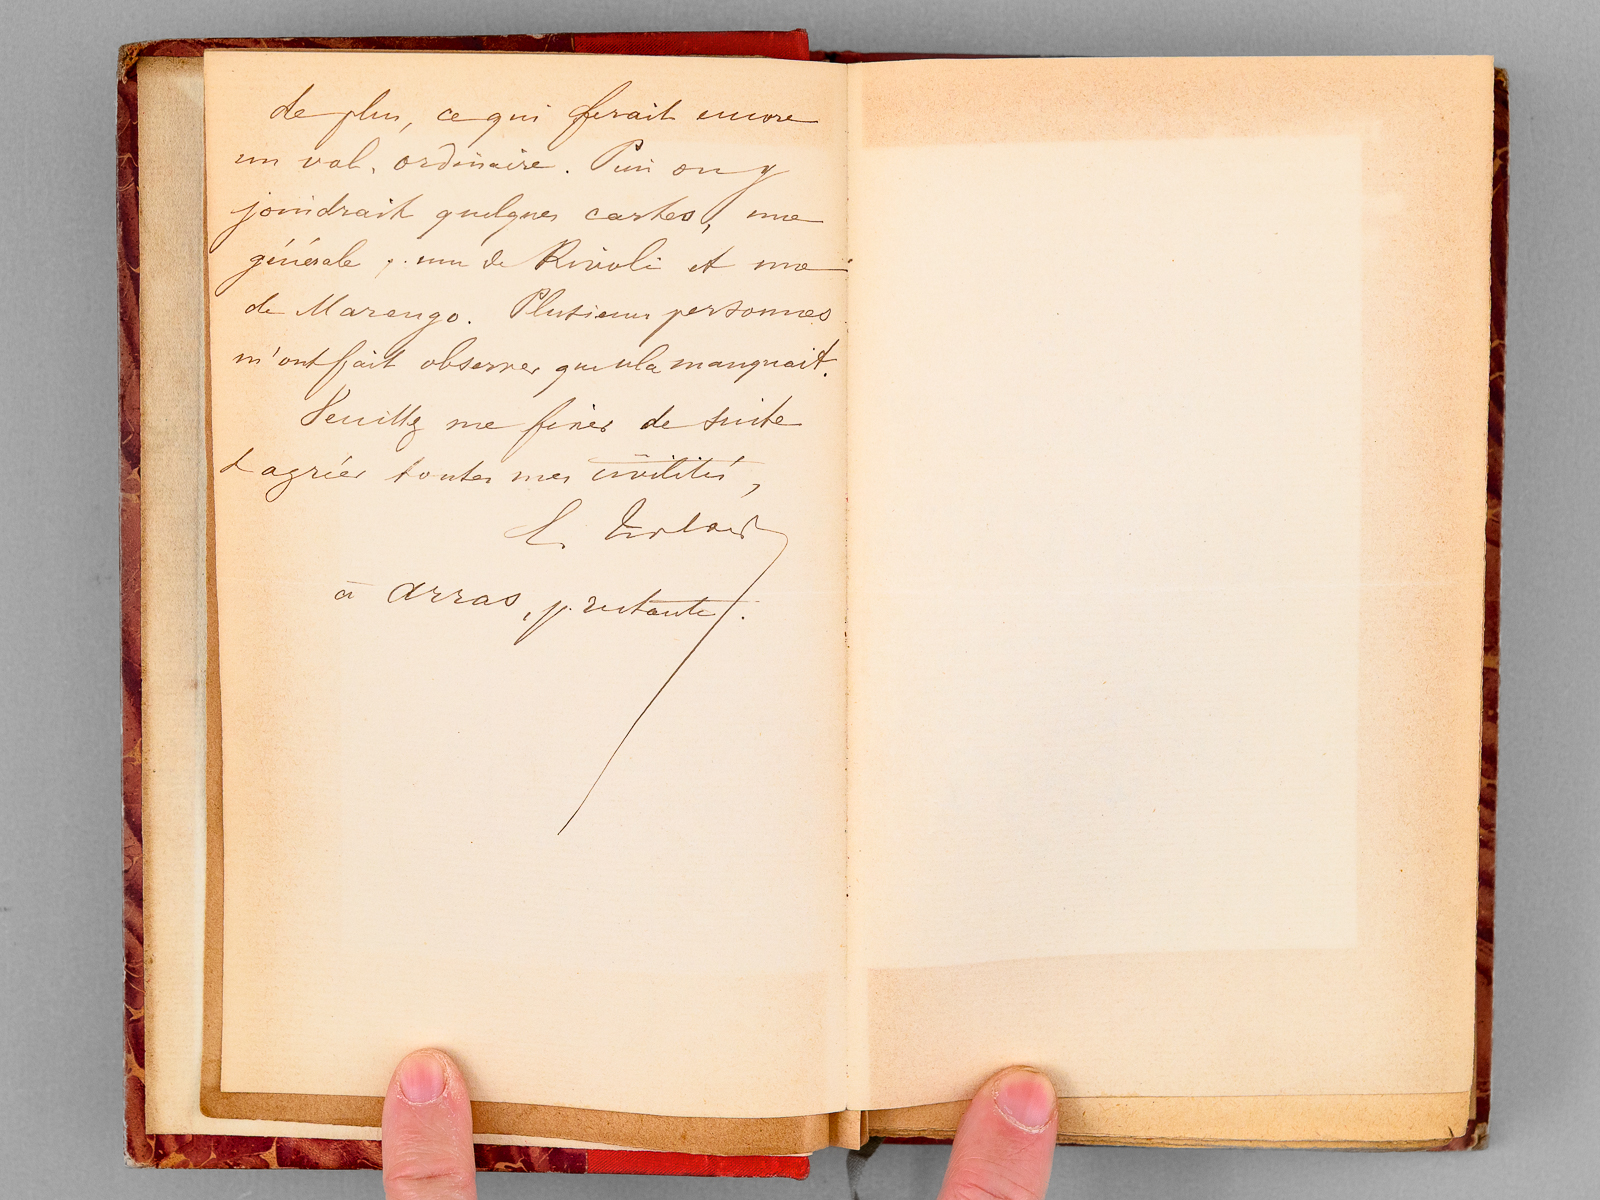 de plus, ce qui ferait encore
un vol. ordinaire. Puis on y
joindrait quelques cartes, une
générale, une de Rivoli et une
de Marengo. Plusieurs personnes
m'ont fait observer que cela manquait.
Veuillez me fixer de suite
et agréer toutes mes civilités,
à Arras, p. restante.